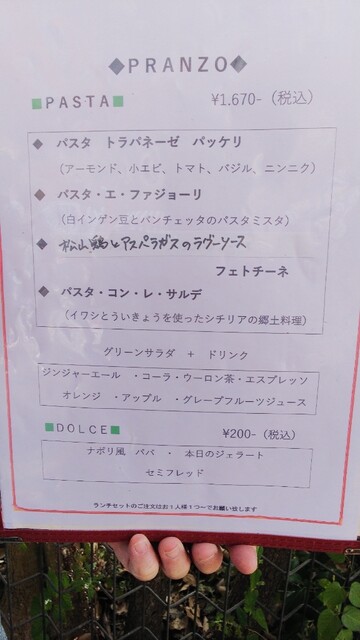 ◆PRANZO◆
■PASTA■ ¥1.670-（税込）
◆ パスタ トラパネーゼ パッケリ
（アーモンド、小エビ、トマト、バジル、ニンニク）
◆ パスタ・エ・ファジョーリ
（白インゲン豆とパンチェッタのパスタミスタ）
◆ 松山鶏とアスパラガスのラグーソース
フェトチーネ
◆ パスタ・コン・レ・サルデ
（イワシとういきょうを使ったシチリアの郷土料理）
グリーンサラダ + ドリンク
ジンジャーエール ・コーラ・ウーロン茶・エスプレッソ
オレンジ ・アップル ・グレープフルーツジュース
■DOLCE■ ¥200-（税込）
ナポリ風 ババ ・ 本日のジェラート
セミフレッド
ランチセットのご注文はお１人様１つ〜でお願い致します